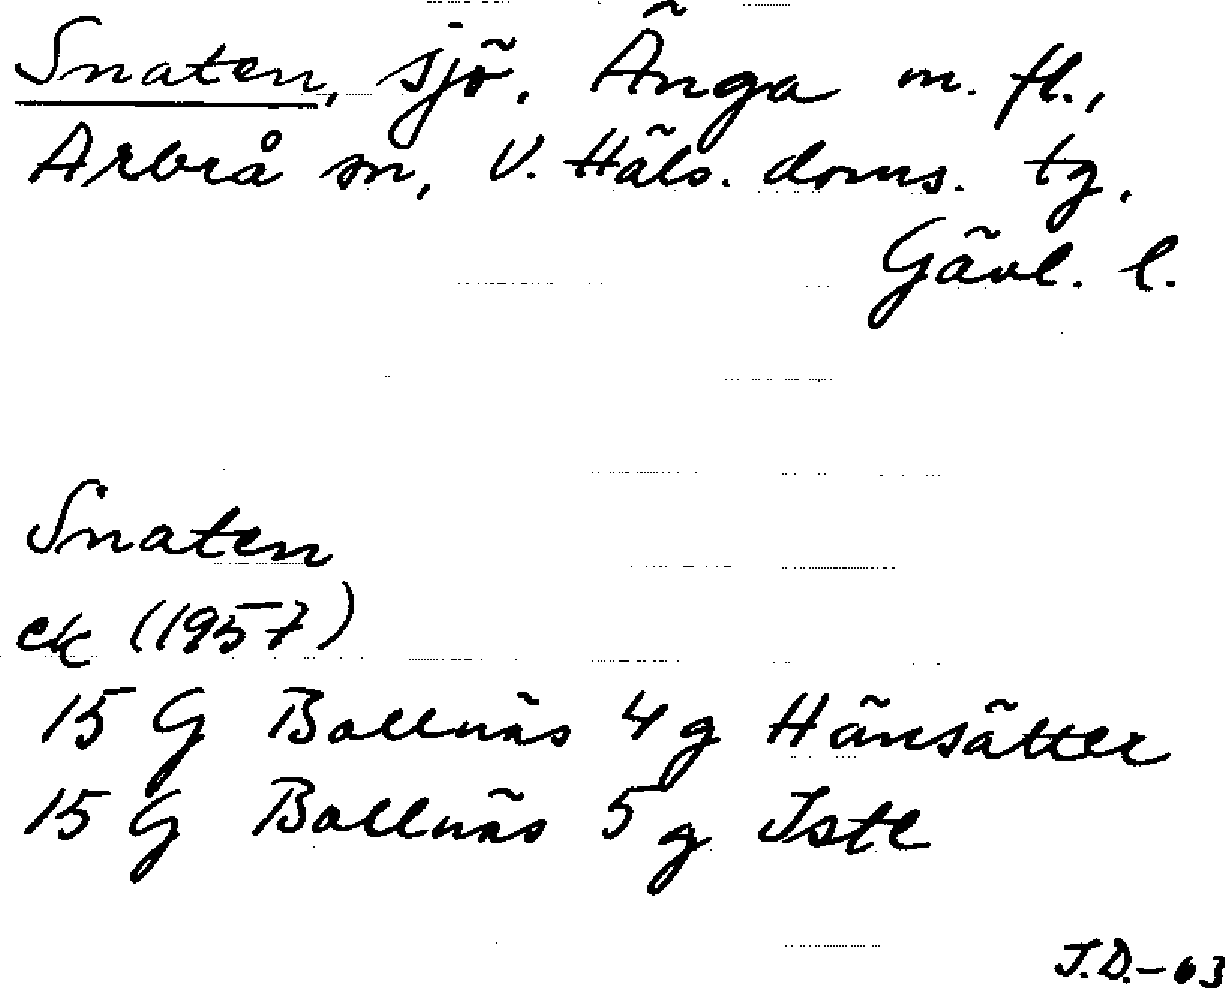 Snaten, sjö, Änga m. fl.,
Arbrå sn, V. Häls. doms. tg.
Gävl. l.
Snaten
ek (1957)
15 G Bollnäs 4 g Hänsätter
15 G Bollnäs 5 g Iste
J.D.-63